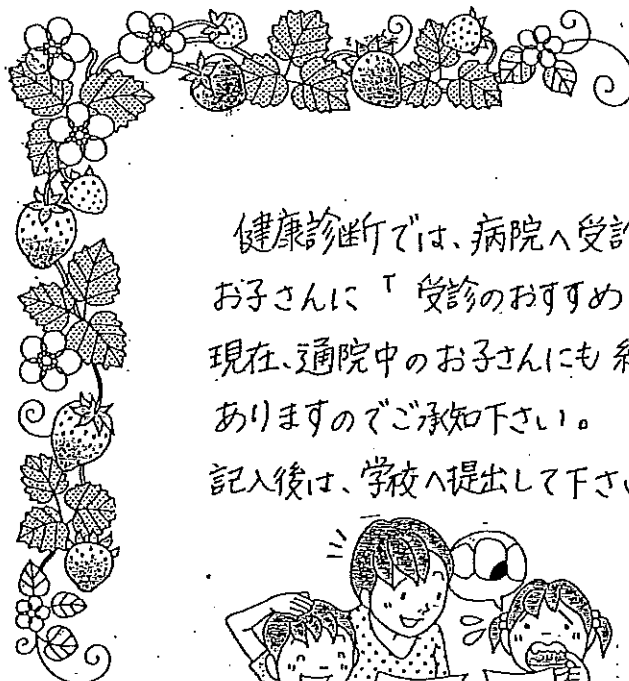 健康診断では、病院へ受診
お子さんに「受診のおすすめ
現在、通院中のお子さんにも
ありますのでご承知下さい。
記入後は、学校へ提出して下さい